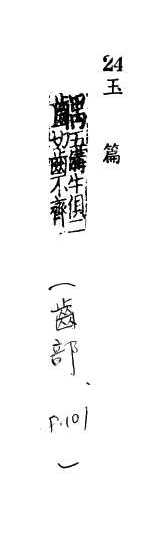 24
玉篇
齵五溝牛俱二
切齒不齊
(齒部、P.101)